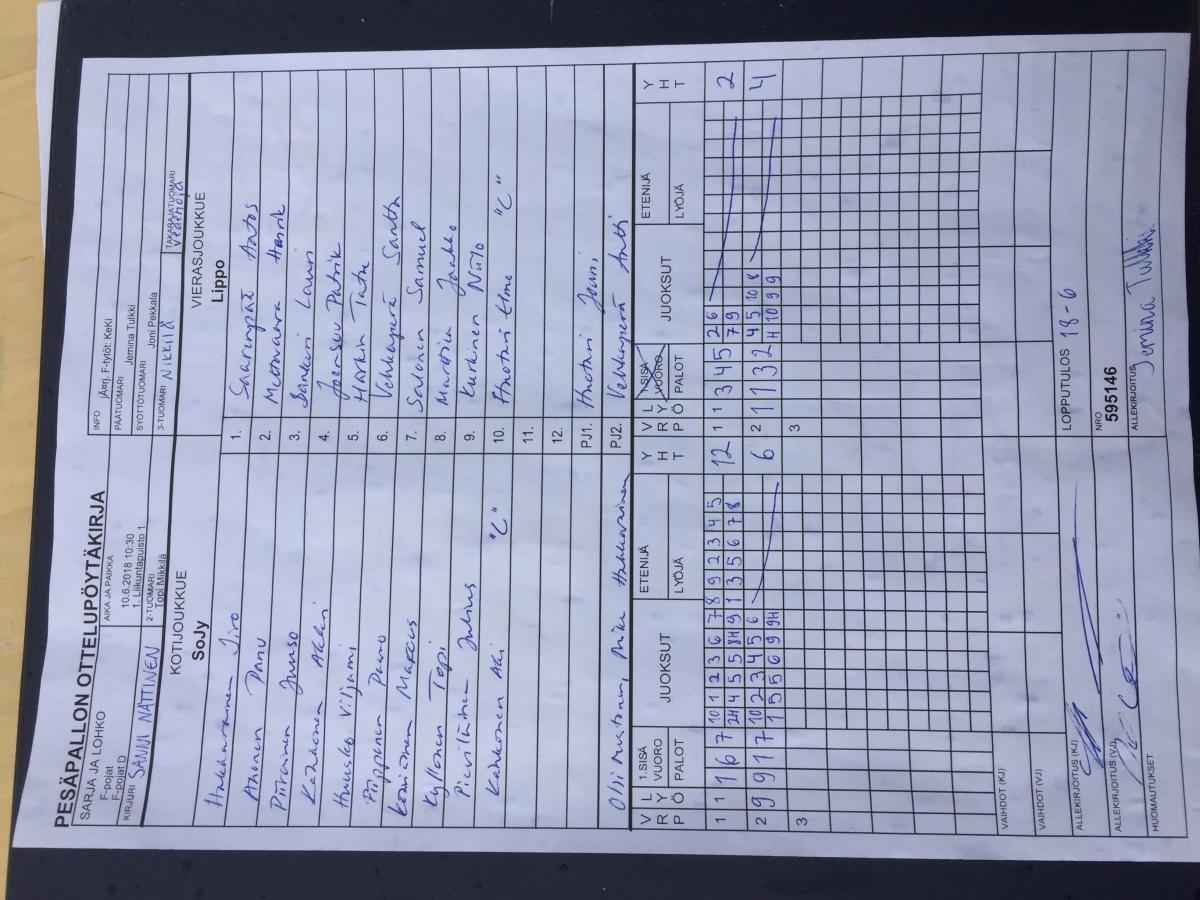 PESÄPALLON OTTELUPÖYTÄKIRJA
SARJA JA LOHKO
F-pojat
F-pojat D
AIKA JA PAIKKA
10.6.2018 10:30
1. Liikuntapuisto 1
INFO jÄrj. F-tytöt: KeKi
PÄÄTUOMARI
Jemina Tulkki
SYÖTTÖTUOMARI
Joni Pekkala
KIRJURI SANNI NÄTTINEN
2-TUOMARI
Topi Mikkilä
3-TUOMARI NIKKILÄ
TAKARAJATUOMARI
KOTIJOUKKUE
SoJy
VIERASJOUKKUE
Lippo
Hakkarainen Iiro 1. Saarenpää Aatos
Ahonen Danu 2. Metsovaara Henrik
Piirainen Juuso 3. Bänkeri Lauri
Kähkönen Akkri 4. Joensuu Patrik
Huusko Viljami 5. Harkin Tatu
Piipponen Paavo 6. Vehkaperä Santtu
Komiainen Marcus 7. Salonen Samuel
Kyllönen Topi 8. Jaakko
Julius 9. Kurkinen Niilo
Kähkönen Aki "C" 10. Hnotari Elmo "C"
11.
12.
PJ1. Hnotari Jouni
Olli Mustonen, Mika Hakkarainen PJ2. Vehkaperä Antti
VRP LYÖ 1.SISÄ VUORO PALOT JUOKSUT ETENIJÄ LYÖJÄ YHT VRP LYÖ 1.SISÄ VUORO PALOT JUOKSUT ETENIJÄ LYÖJÄ YHT
1 1 1 6 7 10 1 2 3 6 7 8 9 2 3 4 5 12 1 1 3 4 5 2 6 2
2H 4 5 5 8H 9 1 3 5 6 7 8 7 9
2 9 9 1 7 10 2 3 4 5 6 6 2 1 1 3 2 4 5 10 8 4
1 5 5 6 9 9H H 10 9 9
3 3
VAIHDOT (KJ)
VAIHDOT (VJ)
ALLEKIRJOITUS (KJ)
LOPPUTULOS 18-6
ALLEKIRJOITUS (VJ)
NRO
595146
HUOMAUTUKSET
ALLEKIRJOITUS
Jemina Tulkki